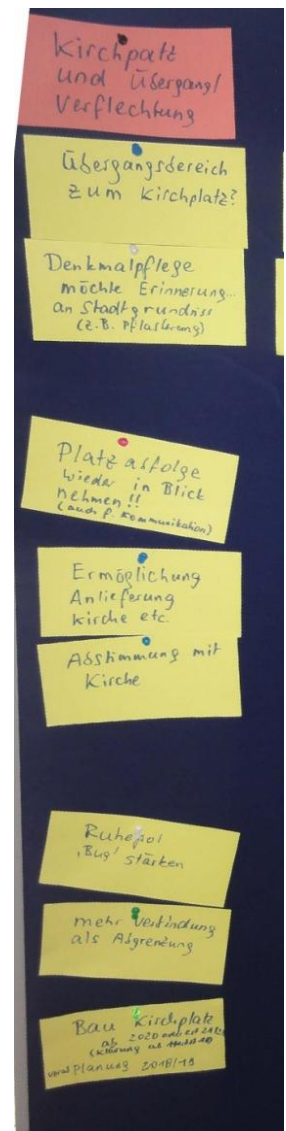 Kirchpatz
und Übergang/
Verflechtung
Übergangsbereich
zum Kirchplatz?
Denkmalpflege
möchte Erinnerung...
an Stadtgrundriss
(z.B. Pflasterung)
Platzabfolge
wieder in Blick
nehmen!!
(auch f. Kommunikation)
Ermöglichung
Anlieferung
Kirche etc.
Abstimmung mit
Kirche
Ruhepol
'Bug' stärken
mehr Verbindung
als Abgrenzung
Bau Kirchplatz
ab 2020 oder erst
(Klärung ab
Planung 2018/19